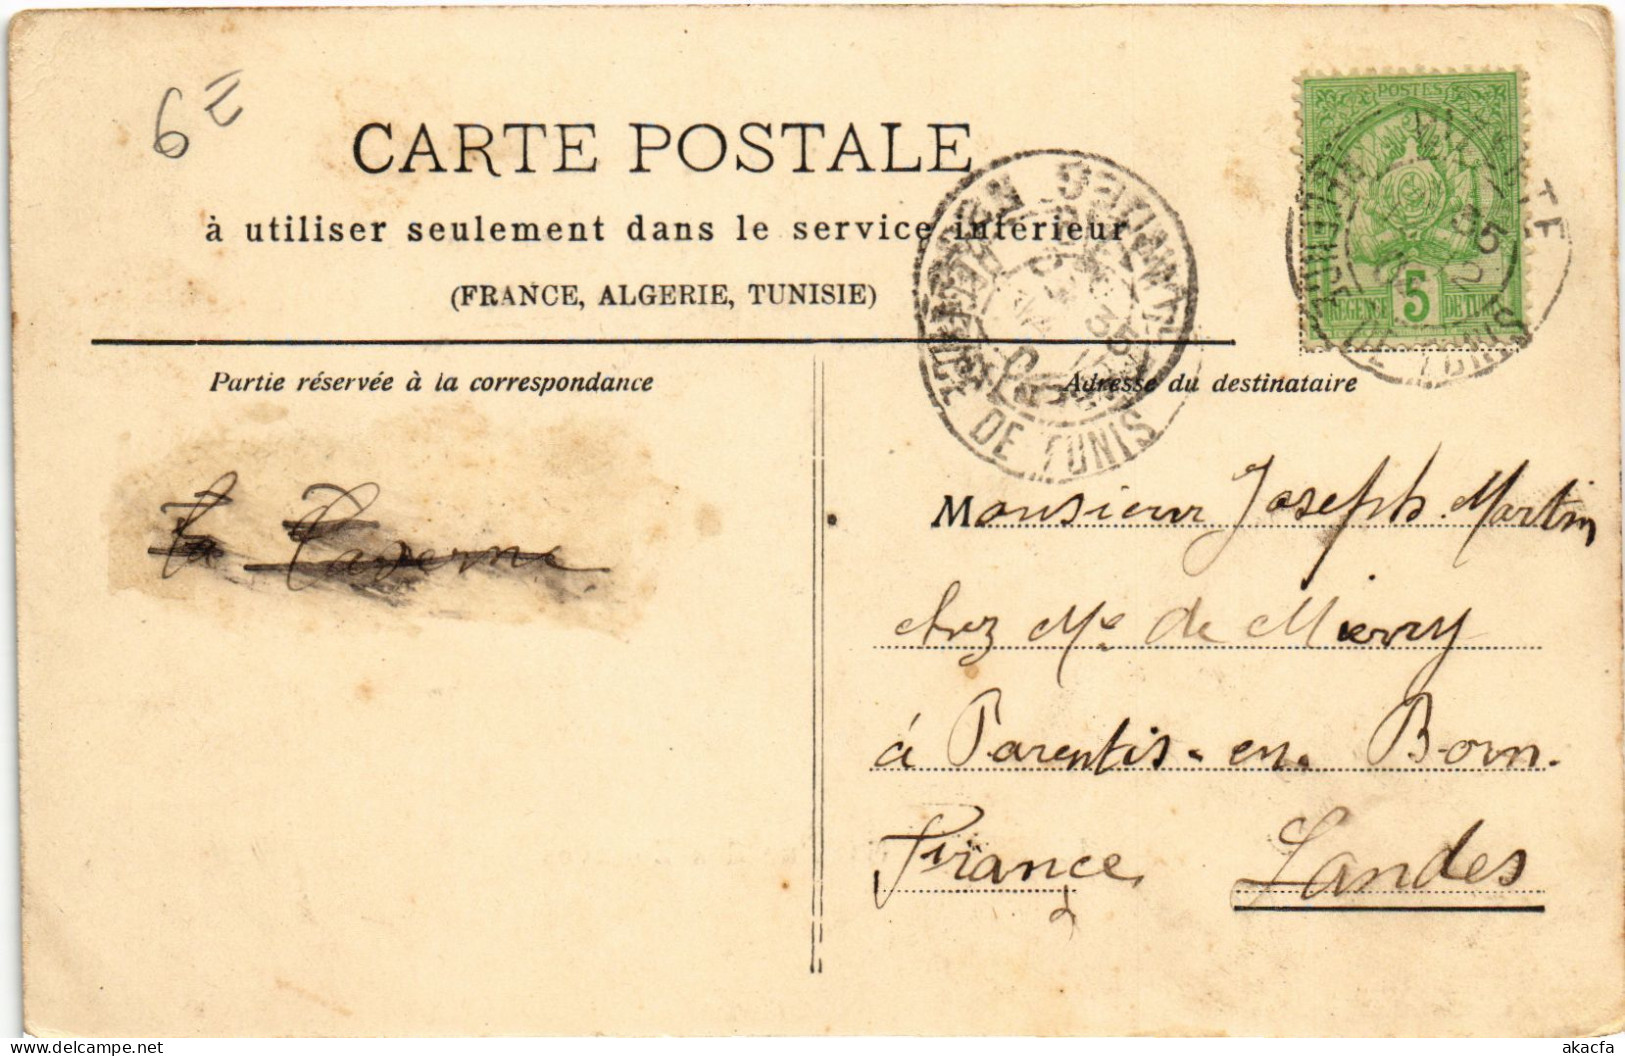 6
CARTE POSTALE
à utiliser seulement dans le service intérieur
(FRANCE, ALGERIE, TUNISIE)
POSTES
REGENCE 5 DE TUNIS
DE TUNIS
DE TUNIS
Partie réservée à la correspondance
Adresse du destinataire
La Caverne
Monsieur Joseph Martin
chez Me de Mierry
à Parentis-en-Born.
France, Landes
akacfa